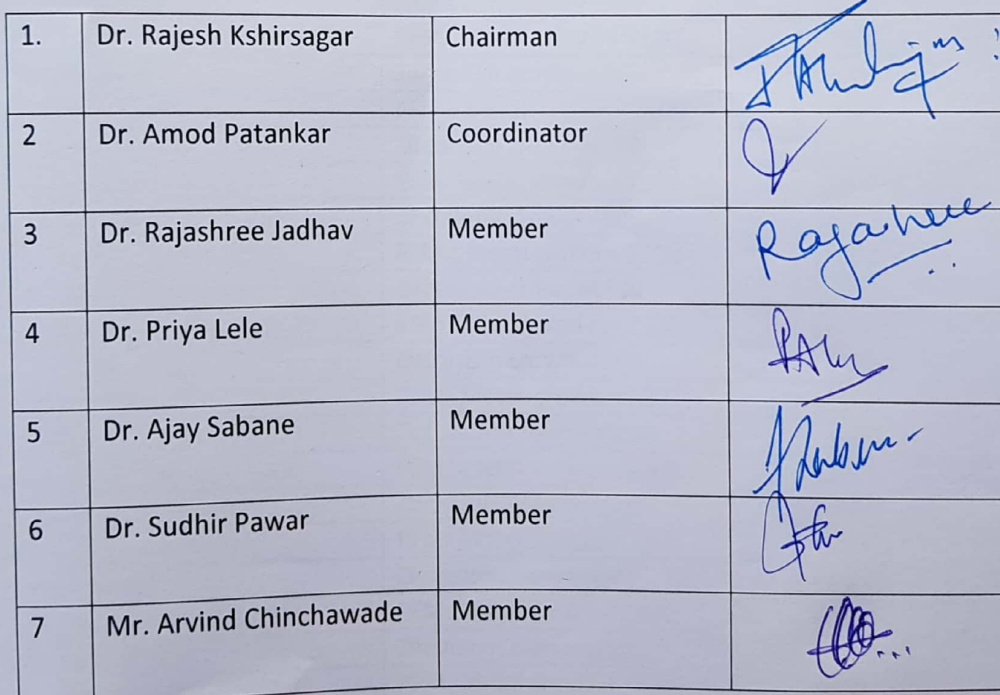 1. Dr. Rajesh Kshirsagar Chairman
2 Dr. Amod Patankar Coordinator
3 Dr. Rajashree Jadhav Member Rajashree
4 Dr. Priya Lele Member
5 Dr. Ajay Sabane Member
6 Dr. Sudhir Pawar Member
7 Mr. Arvind Chinchawade Member